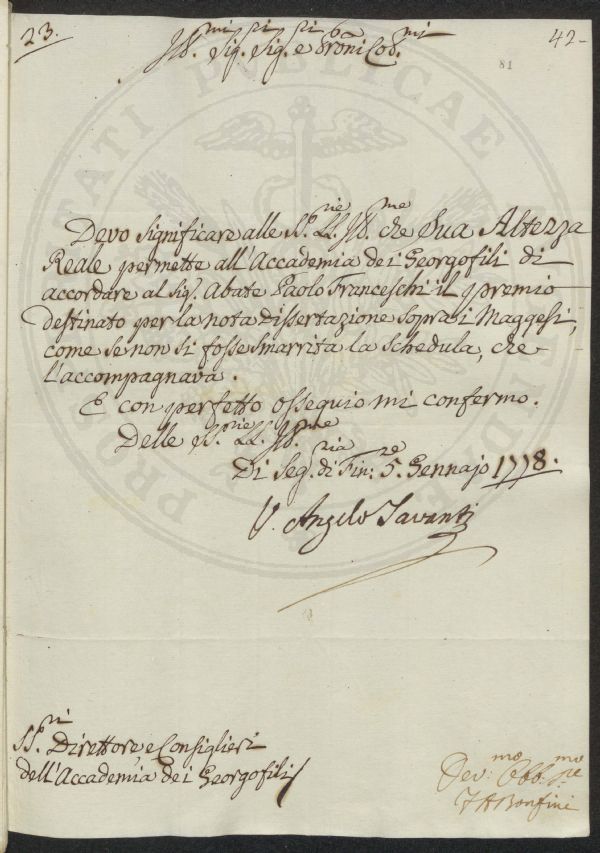 23.
42
81
Ill.mi Sig.ri Sig.ri e Proni Col.mi
Devo significare alle SS.rie LL. Ill.me che Sua Altezza
Reale permette all'Accademia dei Georgofili di
accordare al Sig. Abate Paolo Franceschi il premio
destinato per la nota Dissertazione sopra i Maggesi,
come se non si fosse smarrita la schedula, che
l'accompagnava.
E con perfetto ossequio mi confermo.
Delle SS.rie LL. Ill.me
Di Seg.ria di Fin:re 5. Gennajo 1778.
V. Angelo Tavanti
SS.ri Direttore e Consiglieri
dell'Accademia dei Georgofili
Dev:mo Obb:mo
Bonfini
PROSPERITATI PUBLICAE